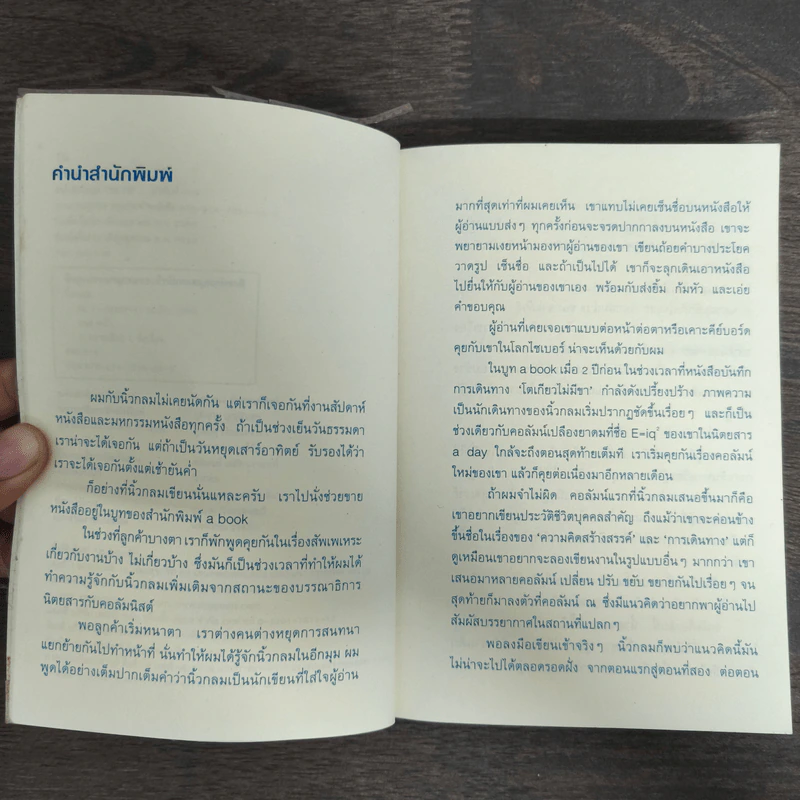 คำนำสำนักพิมพ์
ผมกับนิ้วกลมไม่เคยนัดกัน แต่เราก็เจอกันที่งานสัปดาห์
หนังสือและมหกรรมหนังสือทุกครั้ง ถ้าเป็นช่วงเย็นวันธรรมดา
เราน่าจะได้เจอกัน แต่ถ้าเป็นวันหยุดเสาร์อาทิตย์ รับรองได้ว่า
เราจะได้เจอกันตั้งแต่เช้ายันค่ำ
ก็อย่างที่นิ้วกลมเขียนนั่นแหละครับ เราไปนั่งช่วยขาย
หนังสืออยู่ในบูทของสำนักพิมพ์ a book
ในช่วงที่ลูกค้าบางตา เราก็พักพูดคุยกันในเรื่องสัพเพเหระ
เกี่ยวกับงานบ้าง ไม่เกี่ยวบ้าง ซึ่งมันก็เป็นช่วงเวลาที่ทำให้ผมได้
ทำความรู้จักกับนิ้วกลมเพิ่มเติมจากสถานะของบรรณาธิการ
นิตยสารกับคอลัมนิสต์
พอลูกค้าเริ่มหนาตา เราต่างคนต่างหยุดการสนทนา
แยกย้ายกันไปทำหน้าที่ นั่นทำให้ผมได้รู้จักนิ้วกลมในอีกมุม ผม
พูดได้อย่างเต็มปากเต็มคำว่านิ้วกลมเป็นนักเขียนที่ใส่ใจผู้อ่าน
มากที่สุดเท่าที่ผมเคยเห็น เขาแทบไม่เคยเซ็นชื่อบนหนังสือให้
ผู้อ่านแบบส่งๆ ทุกครั้งก่อนจะจรดปากกาลงบนหนังสือ เขาจะ
พยายามเงยหน้ามองหาผู้อ่านของเขา เขียนถ้อยคำบางประโยค
วาดรูป เซ็นชื่อ และถ้าเป็นไปได้ เขาก็จะลุกเดินเอาหนังสือ
ไปยื่นให้กับผู้อ่านของเขาเอง พร้อมกับส่งยิ้ม ก้มหัว และเอ่ย
คำขอบคุณ
ผู้อ่านที่เคยเจอเขาแบบต่อหน้าต่อตาหรือเคาะคีย์บอร์ด
คุยกับเขาในโลกไซเบอร์ น่าจะเห็นด้วยกับผม
ในบูท a book เมื่อ 2 ปีก่อน ในช่วงเวลาที่หนังสือบันทึก
การเดินทาง 'โตเกียวไม่มีขา' กำลังดังเปรี้ยงปร้าง ภาพความ
เป็นนักเดินทางของนิ้วกลมเริ่มปรากฏชัดขึ้นเรื่อยๆ และก็เป็น
ช่วงเดียวกับคอลัมน์เปลืองยาดมที่ชื่อ E=iq² ของเขาในนิตยสาร
a day ใกล้จะถึงตอนสุดท้ายเต็มที เราเริ่มคุยกันเรื่องคอลัมน์
ใหม่ของเขา แล้วก็คุยต่อเนื่องมาอีกหลายเดือน
ถ้าผมจำไม่ผิด คอลัมน์แรกที่นิ้วกลมเสนอขึ้นมาก็คือ
เขาอยากเขียนประวัติชีวิตบุคคลสำคัญ ถึงแม้ว่าเขาจะค่อนข้าง
ขึ้นชื่อในเรื่องของ 'ความคิดสร้างสรรค์' และ 'การเดินทาง' แต่ก็
ดูเหมือนเขาอยากจะลองเขียนงานในรูปแบบอื่นๆ มากกว่า เขา
เสนอมาหลายคอลัมน์ เปลี่ยน ปรับ ขยับ ขยายกันไปเรื่อยๆ จน
สุดท้ายก็มาลงตัวที่คอลัมน์ ณ ซึ่งมีแนวคิดว่าอยากพาผู้อ่านไป
สัมผัสบรรยากาศในสถานที่แปลกๆ
พอลงมือเขียนเข้าจริงๆ นิ้วกลมก็พบว่าแนวคิดนี้มัน
ไม่น่าจะไปได้ตลอดรอดฝั่ง จากตอนแรกสู่ตอนที่สอง ต่อตอน